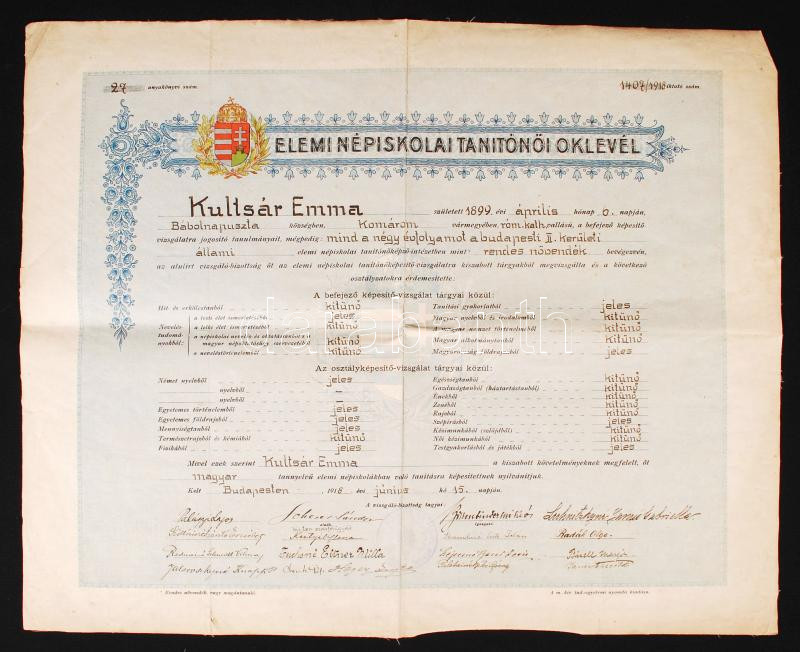 27 anyakönyvi szám.
1407/1918 iktató szám.
ELEMI NÉPISKOLAI TANITÓNŐI OKLEVÉL
Kultsár Emma született 1899. évi április hónap 6. napján,
Bábolnapuszta községben, Komárom vármegyében, róm. kath. vallású, a befejező képesítő
vizsgálatra jogosító tanulmányait, mégpedig: mind a négy évfolyamot a budapesti II. kerületi
állami elemi népiskolai tanítónőképző-intézetben mint* rendes növendék bevégezvén,
az alulírt vizsgáló-bizottság őt az elemi népiskolai tanítónőképesítő-vizsgálatra kiszabott tárgyakból megvizsgálta és a következő
osztályzatokra érdemesítette:
A befejező képesítő-vizsgálat tárgyai közül:
Hit és erkölcstanból kitünő
Nevelés-
tudomá-
nyokból:
a testi élet ismeretéből jeles
a lelki élet ismeretéből kitünő
a népiskolai nevelés és oktatástanból s a
magyar népoktatásügy szervezetéből kitünő
a neveléstörténelemből kitünő
Tanítási gyakorlatból jeles
Magyar nyelvből és irodalomból kitünő
A magyar nemzet történelméből kitünő
Magyar alkotmánytanból kitünő
Magyarország földrajzából jeles
darabanth
Az osztályképesítő-vizsgálat tárgyai közül:
Német nyelvből jeles
nyelvből –
nyelvből –
Egyetemes történelemből jeles
Egyetemes földrajzból jeles
Mennyiségtanból jeles
Természetrajzból és kémiából kitünő
Fizikából jeles
Egészségtanból kitünő
Gazdaságtanból (háztartástanból) kitünő
Énekből kitünő
Zenéből kitünő
Rajzból kitünő
Szépírásból jeles
Kézimunkából (szlöjdből) kitünő
Női kézimunkából kitünő
Testgyakorlásból és játékból kitünő
Mivel ezek szerint Kultsár Emma a kiszabott követelményeknek megfelelt, őt
magyar tannyelvű elemi népiskolákban való tanításra képesítettnek nyilvánítjuk.
Kelt Budapesten 1918 évi június hó 15. napján.
A vizsgáló-bizottság tagjai:
Scherer Sándor
Radák Olga
Tuháné Eitner Milla
* Rendes növendék vagy magántanuló.
A m. kir. tud.-egyetemi nyomda kiadása.